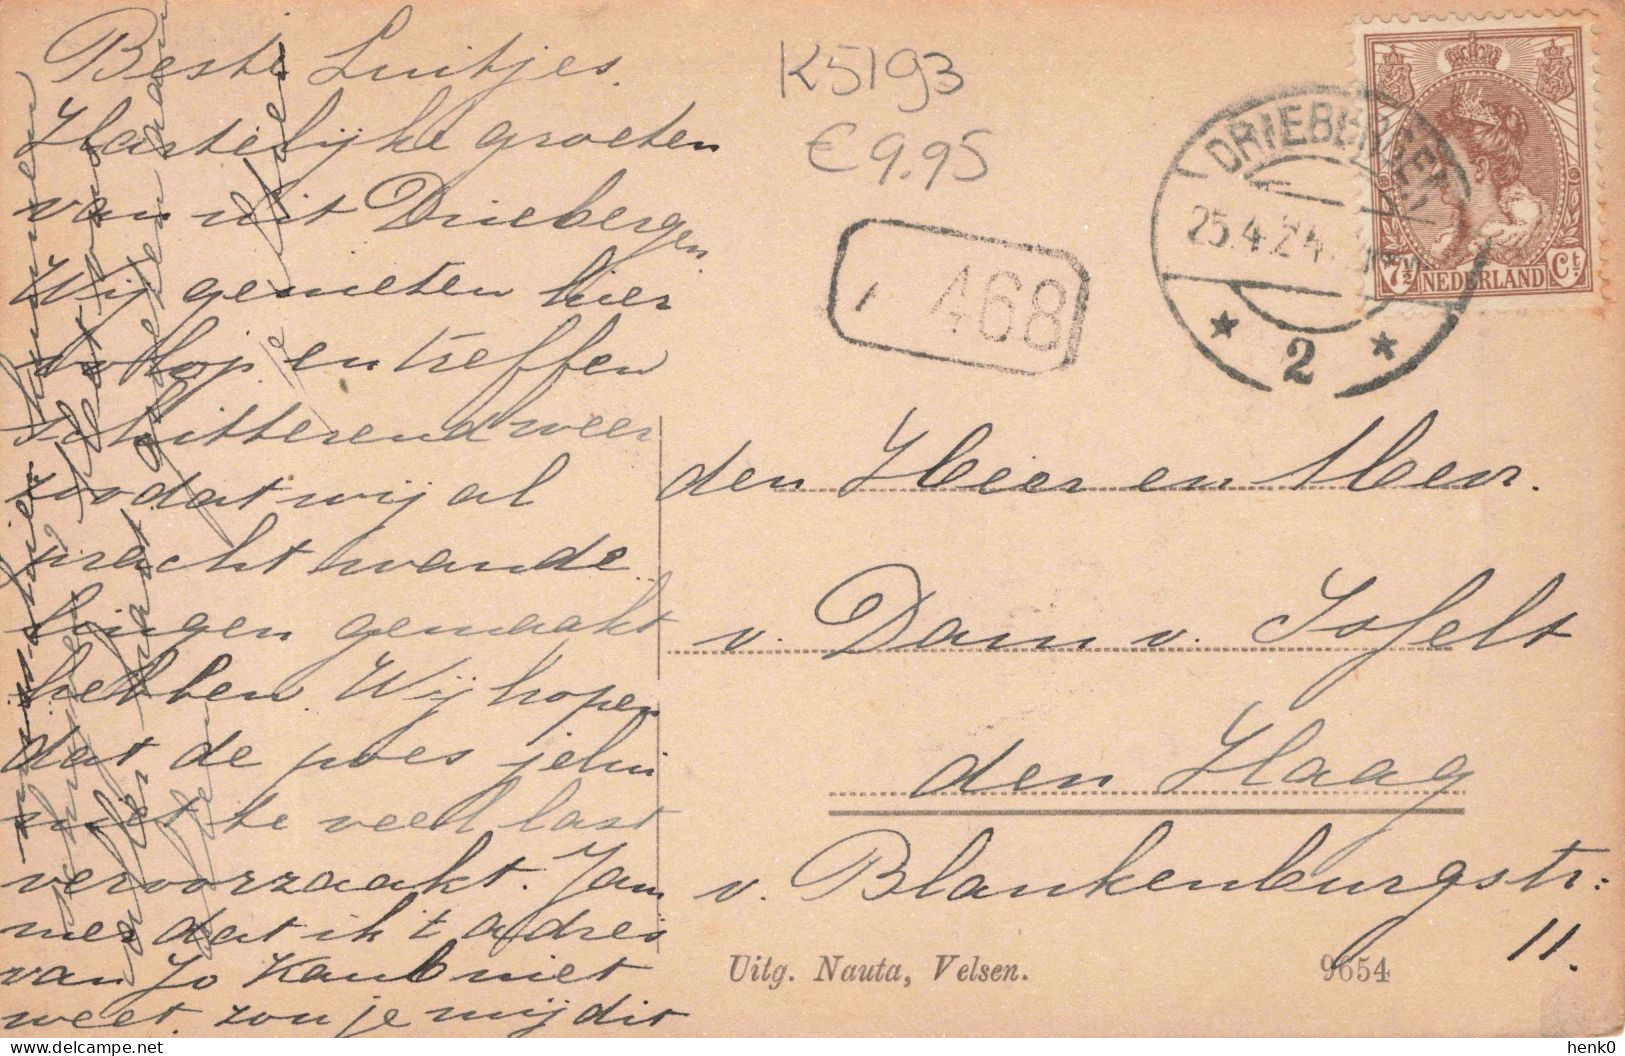 Beste Luitjes.
Hartelijke groeten
van uit Driebergen.
Wij genieten hier
volop en treffen
schitterend weer
zoodat wij al
pracht wande-
lingen gemaakt
hebben. Wij hopen
dat de poes jelui
niet te veel last
veroorzaakt. Jam
mer dat ik 't adres
van Jo Kaub niet
weet. zou je mij dit
K5193
€ 9.95
468
DRIEBERGEN
25.4.24
2
7½ NEDERLAND Ct
den Heer en Mevr.
v. Dam v. Isselt
den Haag
v. Blankenburgstr:
11.
Uitg. Nauta, Velsen.
9654
henk0